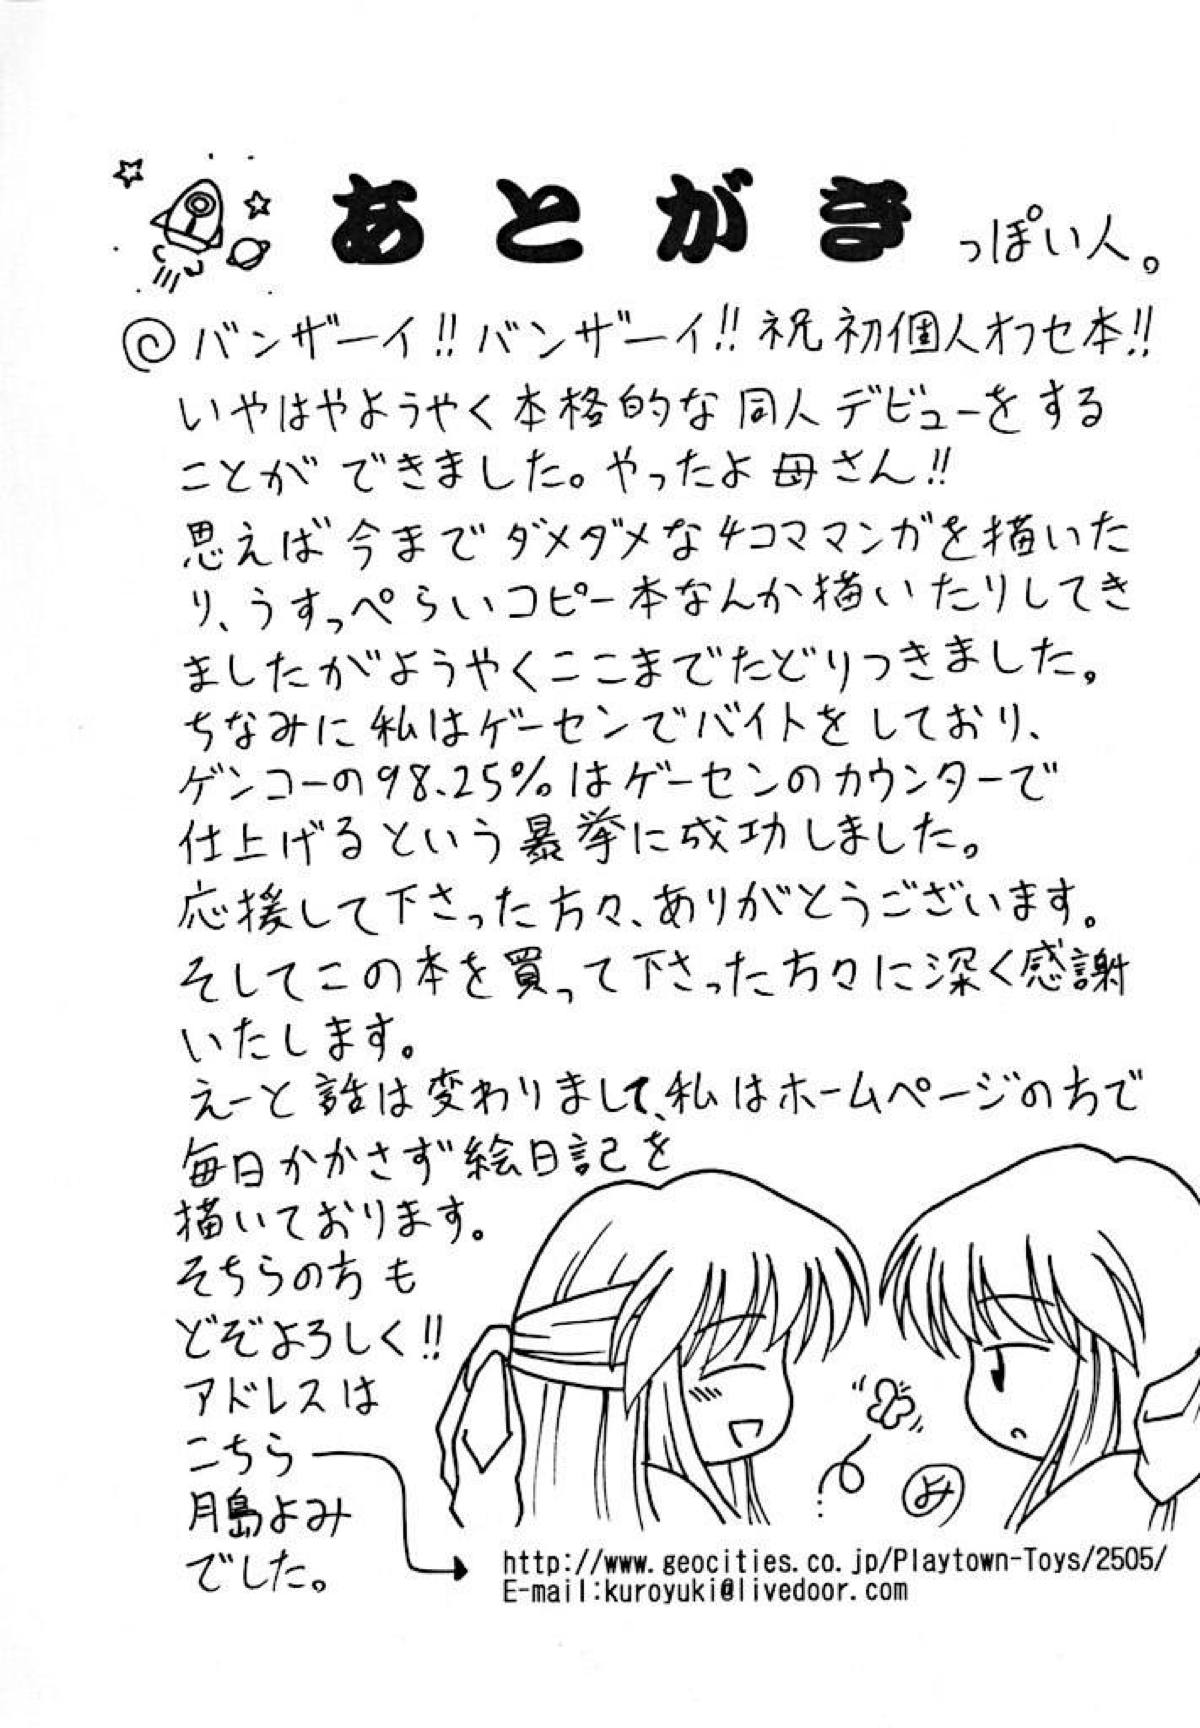 あとがき っぽい人。
バンザーイ!! バンザーイ!! 祝 初個人オフセ本!!
いやはやようやく本格的な同人デビューをする
ことができました。やったよ母さん!!
思えば今までダメダメな4コママンガを描いた
り、うすっぺらいコピー本なんか描いたりしてき
ましたがようやくここまでたどりつきました。
ちなみに私はゲーセンでバイトをしており、
ゲンコーの98.25%はゲーセンのカウンターで
仕上げるという暴挙に成功しました。
応援して下さった方々、ありがとうございます。
そしてこの本を買って下さった方々に深く感謝
いたします。
えーと話は変わりまして、私はホームページの方で
毎日かかさず絵日記を
描いております。
そちらの方も
どぞよろしく!!
アドレスは
こちら
月島よみ
でした。
よ
http://www.geocities.co.jp/Playtown-Toys/2505/
E-mail:kuroyuki@livedoor.com